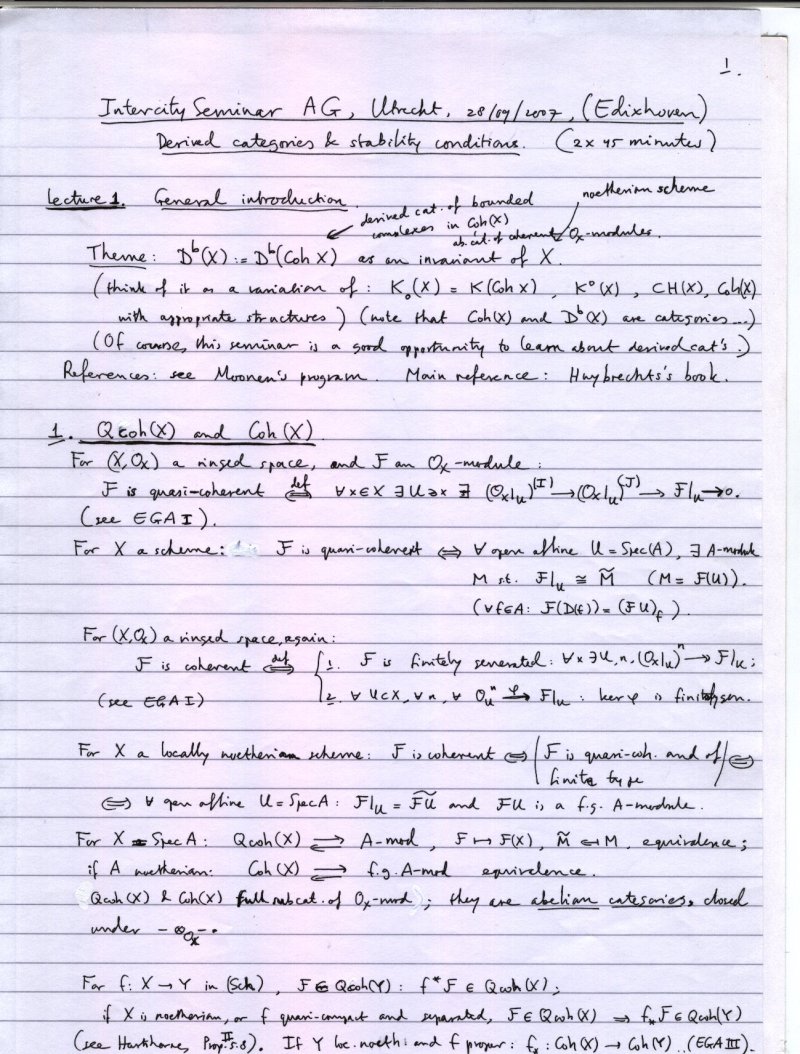 1.
Intercity Seminar AG, Utrecht, 28/09/2007, (Edixhoven)
Derived categories & stability conditions. (2 x 45 minutes)
Lecture 1. General introduction.
noetherian scheme
derived cat. of bounded
complexes in Coh(X)
ab. cat. of coherent O_X-modules.
Theme: D^b(X) := D^b(Coh X) as an invariant of X.
(think of it as a variation of: K_0(X) = K(Coh X), K^0(X), CH(X), Coh(X)
with appropriate structures) (note that Coh(X) and D^b(X) are categories...)
(Of course, this seminar is a good opportunity to learn about derived cat's.)
References: see Moonen's program. Main reference: Huybrechts's book.
1. Qcoh(X) and Coh(X).
For (X,O_X) a ringed space, and F an O_X-module:
F is quasi-coherent ⇔^{def} ∀x∈X ∃U∋x ∃ (O_X|_U)^{(I)} → (O_X|_U)^{(J)} → F|_U → 0.
(see EGA I).
For X a scheme: F is quasi-coherent ⇔ ∀ open affine U = Spec(A), ∃ A-module
M s.t. F|_U ≅ M̃ (M = F(U)).
(∀f∈A: F(D(f)) = (FU)_f).
For (X,O_X) a ringed space, again:
F is coherent ⇔^{def} { 1. F is finitely generated: ∀x ∃U,n, (O_X|_U)^n ↠ F|_U;
(see EGA I) 2. ∀ U⊂X, ∀n, ∀ O_U^n →^φ F|_U : ker φ is finitely gen.
For X a locally noetherian scheme: F is coherent ⇔ (F is quasi-coh. and of
finite type) ⇔
⇔ ∀ open affine U = Spec A: F|_U = F̃U and FU is a f.g. A-module.
For X = Spec A: Qcoh(X) ⇄ A-mod, F ↦ F(X), M̃ ↤ M, equivalence;
if A noetherian: Coh(X) ⇄ f.g. A-mod equivalence.
Qcoh(X) & Coh(X) full subcat. of O_X-mod; they are abelian categories, closed
under -⊗_{O_X}-.
For f: X → Y in (Sch), F ∈ Qcoh(Y): f^*F ∈ Qcoh(X);
if X is noetherian, or f quasi-compact and separated, F ∈ Qcoh(X) ⇒ f_*F ∈ Qcoh(Y)
(see Hartshorne, Prop. II 5.8). If Y loc. noeth. and f proper: f_*: Coh(X) → Coh(Y). (EGA III).